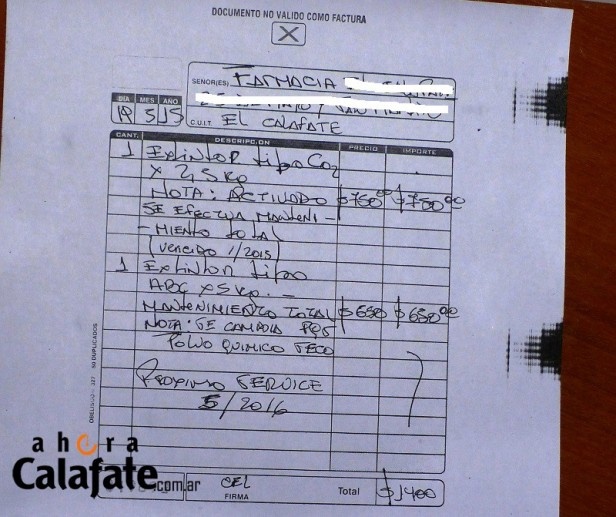 DOCUMENTO NO VALIDO COMO FACTURA
X
SEÑOR(ES) FARMACIA
C.U.I.T. EL CALAFATE
DIA MES AÑO
19 5 15
CANT. DESCRIPCION PRECIO IMPORTE
1 Extintor tipo CO2
x 2,5 Kg
NOTA: ACTIVADO $750 00 $750 00
SE EFECTUA MANTENI-
-MIENTO TOTAL
(VENCIDO 1/2015)
1 Extintor tipo
ABC x 5 Kg. -
MANTENIMIENTO TOTAL $650 $650 00
NOTA: SE CAMBIA PQS
POLVO QUIMICO SECO
PROXIMO SERVICE
5/2016
50 DUPLICADOS
ahora
Calafate
.com.ar
CEL
FIRMA
Total $1400